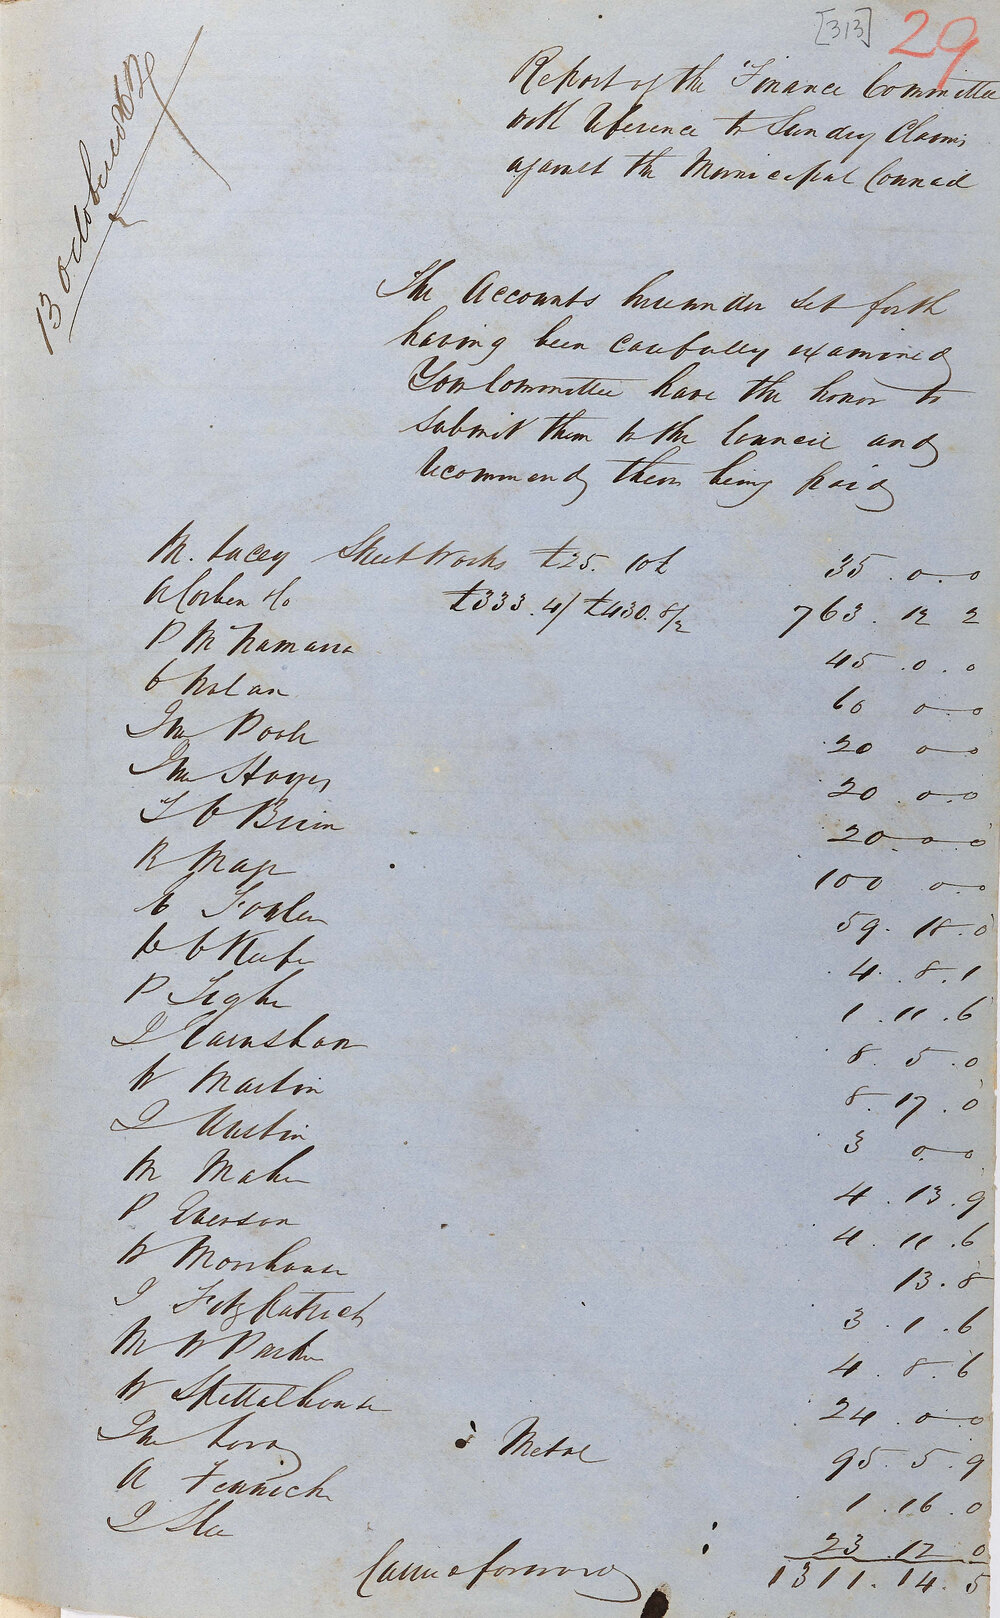 [313] 29
13 October
Report of the Finance Committee
with reference to Sundry Claims
against the Municipal Council
The Accounts hereunder set forth
having been carefully examined
Your Committee have the honor to
submit them to the Council and
recommend them being paid
M. Lacey Street Works £25. 10£ 35 . 0 . 0
A Corben &Co £333. 4/ £430. 8/2 763 . 12 2
P McNamara 45 . 0 . 0
Nolan 60 0 . 0
Jno Poole 20 0 . 0
Jno Hayes 20 . 0 . 0
T O Brien 20 . 0 . 0
R 100 0 . 0
Fowler 59 . 18 . 0
O Keefe 4 . 8 . 1
P Tighe 1 . 11 . 6
J Earnshaw 8 . 5 . 0
W Martin 8 . 17 . 0
J Austin 3 0 . 0
M Maher 4 . 13 . 9
P Everson 4 . 11 . 6
W Moorhouse 13 . 8
J Fitzpatrick 3 . 1 . 6
M W Parker 4 . 8 . 6
W Spittalhouse 24 . 0 . 0
Jno Metal 95 . 5 . 9
A Fennick 1 . 16 . 0
J 23 . 12 0
Carried forward 1311 . 14 . 5